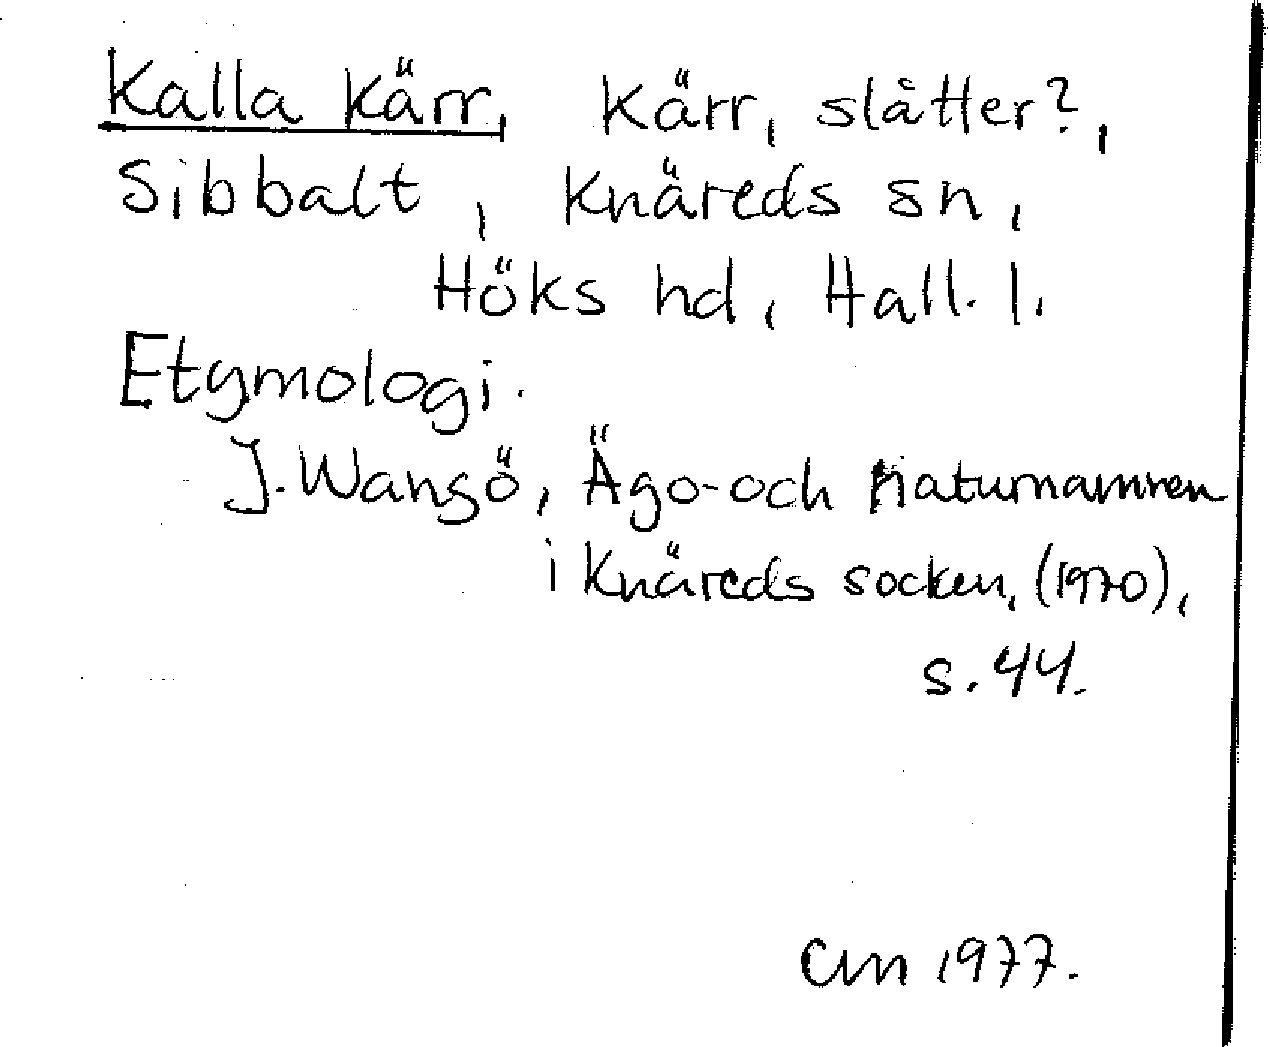 Kalla kärr, Kärr, slåtter?,
Sibbalt, Knäreds sn,
Höks hd, Hall. l.
Etymologi.
J. Wangö, Ägo- och naturnamnen
i Knäreds socken, (1970),
s. 44.
CM 1977.